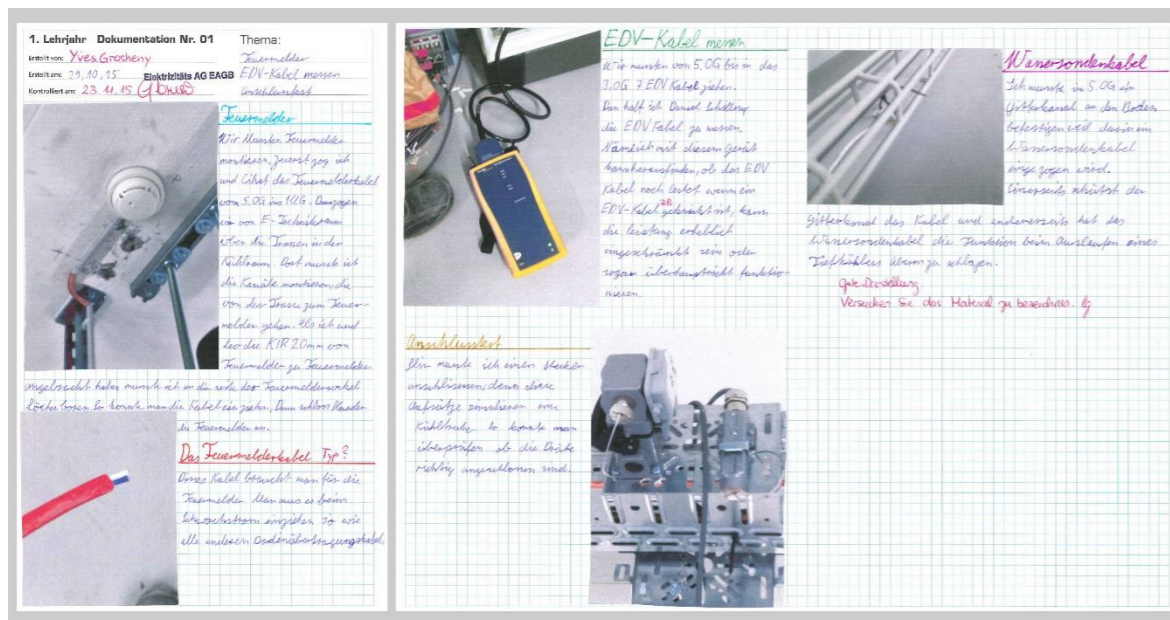 1. Lehrjahr Dokumentation Nr. 01
Thema:
Erstellt von: Yves Grosheny
Feuermelder
Erstellt am: 29.10.15
Elektrizitäts AG EAGB
EDV-Kabel messen
Kontrolliert am: 23.11.15
Anschlusstest
Feuermelder
Wir mussten Feuermelder
montieren, zuerst zog ich
und Cihat das Feuermelderkabel
vom 5.OG ins 1UG. Dann zogen
wir vom E-Technikraum
über die Trassen in den
Kühlraum. Dort musste ich
die Kanäle montieren, die
von der Trasse zum Feuer-
melder gehen. Als ich und
Leo die KIR 20mm von
Feuermelder zu Feuermelder
angebracht haben musste ich in die seite des Feuermeldersockel
Löcher bohren so konnte man die Kabel einziehen. Dann schloss
die Feuermelder an.
Das Feuermelderkabel Typ?
Dieses Kabel braucht man für die
Feuermelder. Man muss es beim
Schwachstrom einziehen so wie
alle anderen Datenübertragungskabel.
EDV-Kabel messen
Wir mussten von 5.OG bis in das
3.OG 7 EDV Kabel ziehen.
Dan half ich Daniel
die EDV Kabel zu messen.
Nämlich mit diesem Gerät
kann herausfinden, ob das EDV
Kabel noch leitet wenn ein
EDV-Kabel zB geknickt ist, kann
die leistung erheblich
eingeschränkt sein oder
sogar überhaupt nicht funktio-
nieren.
Anschlusstest
Hier musste ich einen Stecker
anschliessen, denn diese
Aufsätze simulieren eine
Kühltruhe. So konnte man
überprüfen ob die Drähte
richtig angeschlossen sind.
Wassersondenkabel
Ich musste im 5.OG ein
Gitterkanal an den Boden
befestigen weil darin ein
Wassersondenkabel
eingezogen wird.
Einerseits schützt der
Gitterkanal das Kabel und andererseits hat das
Wassersondenkabel die Funktion beim Auslaufen eines
Tiefkühlers alarm zu schlagen.
Gute Darstellung.
Versuchen Sie das Material zu bezeichnen.